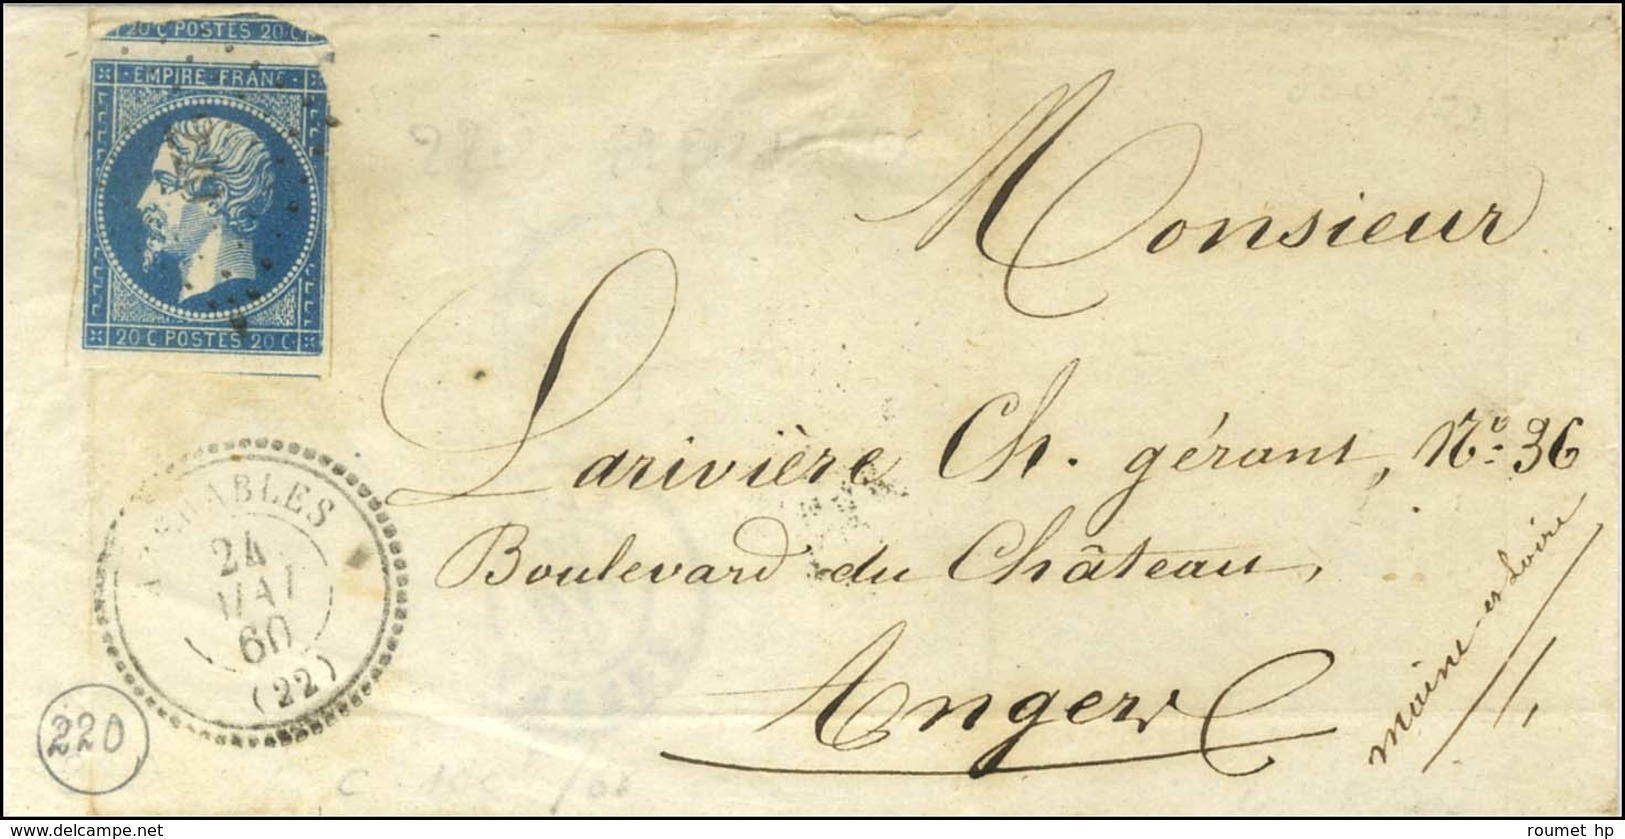 20 C POSTES 20 C
EMPIRE FRANC
20 C POSTES 20 C
Monsieur
Larivière Ch. gérant, No. 36
Boulevard du Château,
Angers
Maine et Loire
24
MAI
60
(22)
220
roumet hp